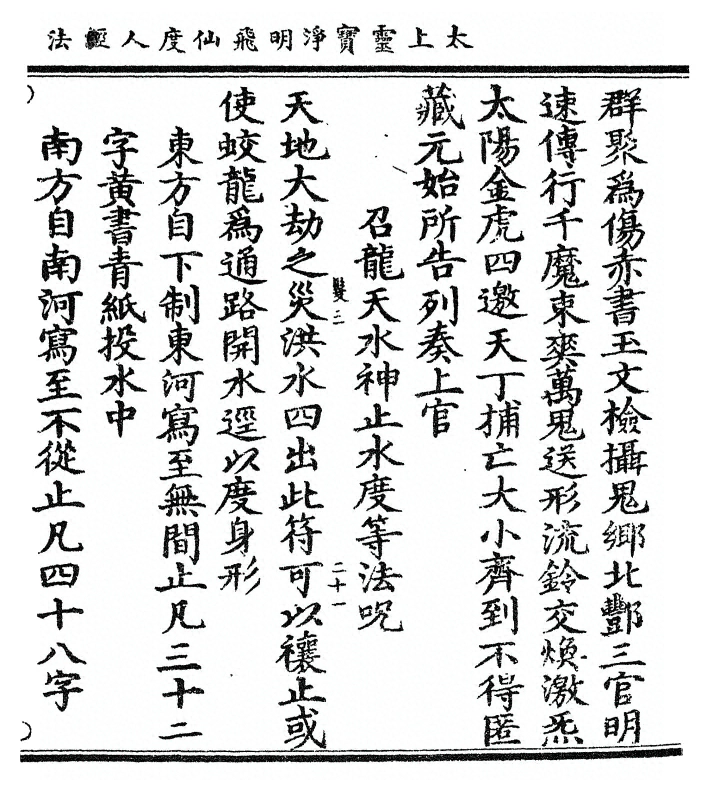 太上靈寶淨明飛仙度人經法
群聚為傷赤書玉文檢攝鬼鄉北酆三官明
速傳行千魔束爽萬鬼送形流鈴交煥激炁
太陽金虎四邀天丁捕亡大小齊到不得匿
藏元始所告列奏上官
召龍天水神止水度等法呪
髮三
二十一
天地大劫之災洪水四出此符可以禳止或
使蛟龍為通路開水逕以度身形
東方自下制東河寫至無間止凡三十二
字黃書青紙投水中
南方自南河寫至不從止凡四十八字